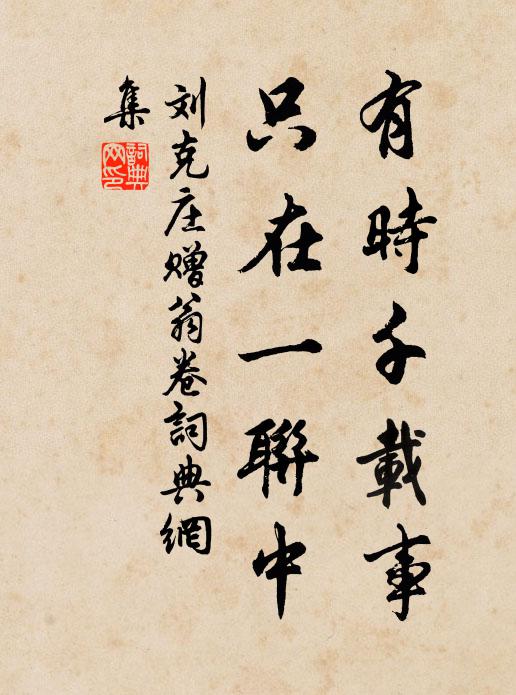 有時千載事
只在一聯中
刘克庄赠翁卷詞典網
集
詞典網印